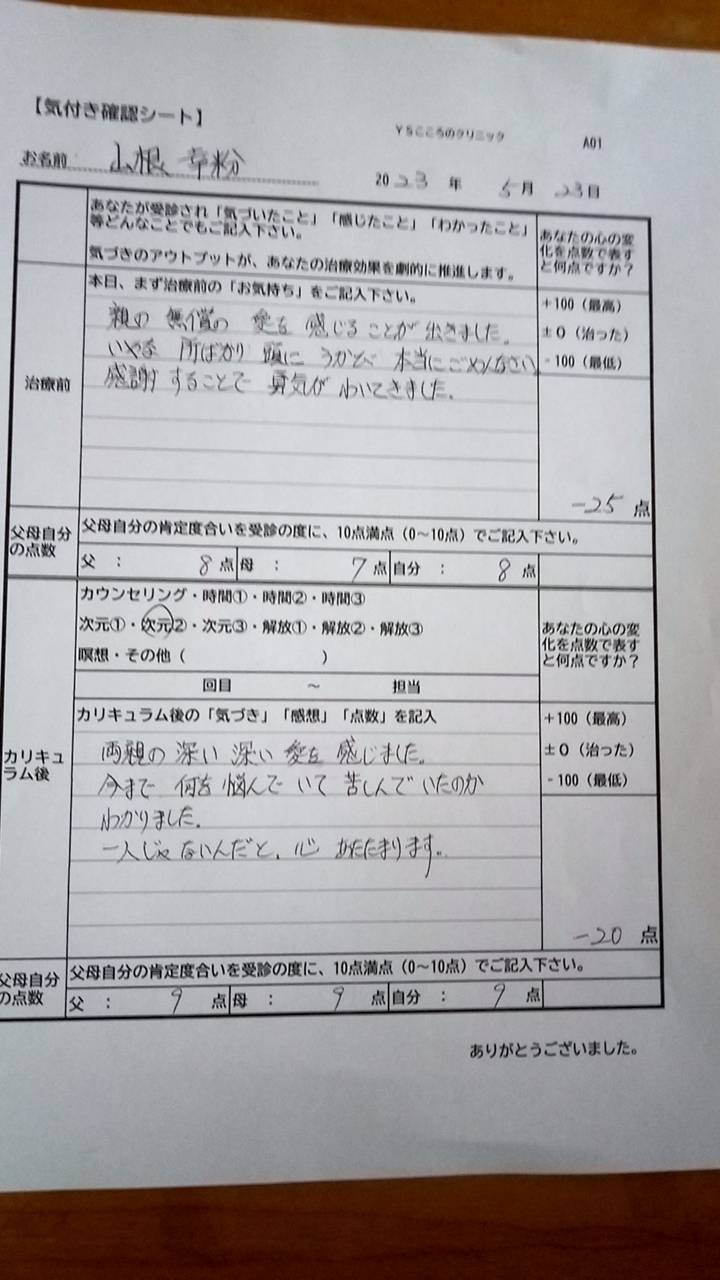 【気付き確認シート】
YSこころのクリニック
A01
お名前 山根
2023 年 5月 23日
あなたが受診され「気づいたこと」「感じたこと」「わかったこと」
等どんなことでもご記入下さい。
気づきのアウトプットが、あなたの治療効果を劇的に推進します。
あなたの心の変
化を点数で表す
と何点ですか？
治療前
本日、まず治療前の「お気持ち」をご記入下さい。
親の 無償の 愛を 感じることが 出きました。
いやな 所ばかり 頭に うかんで 本当にごめんなさい
感謝することで 勇気が わいてきました。
+100（最高）
±0（治った）
-100（最低）
-25 点
父母自分
の点数
父母自分の肯定度合いを受診の度に、10点満点（0〜10点）でご記入下さい。
父 ： 8 点 母 ： 7 点 自分 ： 8 点
カリキュ
ラム後
カウンセリング・時間①・時間②・時間③
次元①・次元②・次元③・解放①・解放②・解放③
瞑想・その他（ ）
回目 〜 担当
あなたの心の変
化を点数で表す
と何点ですか？
カリキュラム後の「気づき」「感想」「点数」を記入
両親の 深い 深い 愛を 感じました。
今まで 何を 悩んで いて 苦しんで いたのか
わかりました。
一人じゃ ないんだと、心 あたたまります。
+100（最高）
±0（治った）
-100（最低）
-20 点
父母自分
の点数
父母自分の肯定度合いを受診の度に、10点満点（0〜10点）でご記入下さい。
父 ： 9 点 母 ： 9 点 自分 ： 9 点
ありがとうございました。